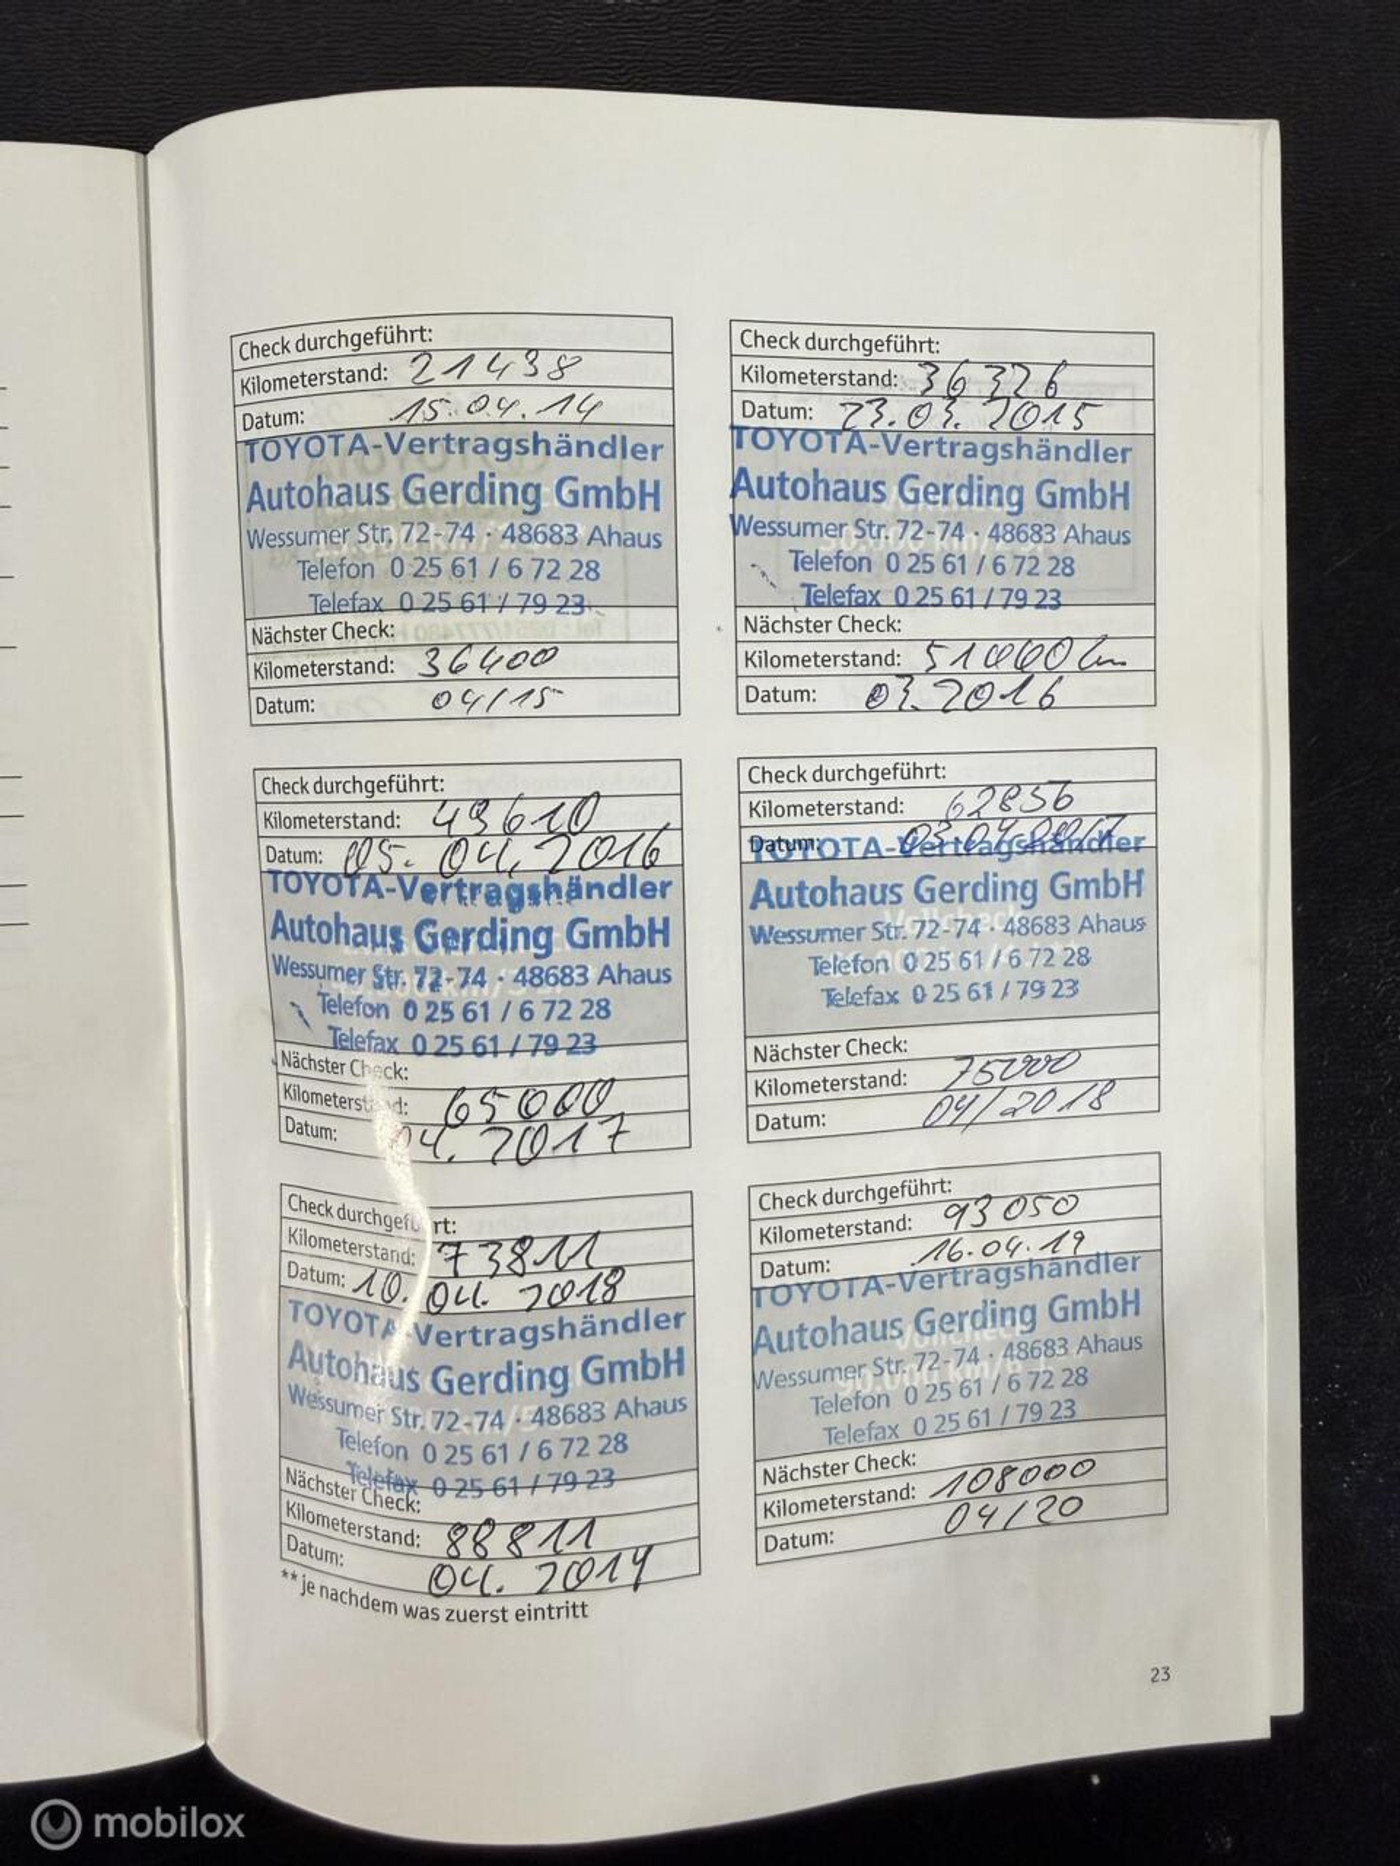 Check durchgeführt:
Kilometerstand: 21438
Datum: 15.04.14
TOYOTA-Vertragshändler
Autohaus Gerding GmbH
Wessumer Str. 72-74 · 48683 Ahaus
Telefon 0 25 61 / 6 72 28
Telefax 0 25 61 / 79 23
Nächster Check:
Kilometerstand: 36400
Datum: 04/15
Check durchgeführt:
Kilometerstand: 36326
Datum: 23.03.2015
TOYOTA-Vertragshändler
Autohaus Gerding GmbH
Wessumer Str. 72-74 · 48683 Ahaus
Telefon 0 25 61 / 6 72 28
Telefax 0 25 61 / 79 23
Nächster Check:
Kilometerstand: 51000 km
Datum: 03.2016
Check durchgeführt:
Kilometerstand: 49610
Datum: 05.04.2016
TOYOTA-Vertragshändler
Autohaus Gerding GmbH
Wessumer Str. 72-74 · 48683 Ahaus
Telefon 0 25 61 / 6 72 28
Telefax 0 25 61 / 79 23
Nächster Check:
Kilometerstand: 65000
Datum: 04.2017
Check durchgeführt:
Kilometerstand: 62856
Datum: 03.04.2017
TOYOTA-Vertragshändler
Autohaus Gerding GmbH
Wessumer Str. 72-74 · 48683 Ahaus
Telefon 0 25 61 / 6 72 28
Telefax 0 25 61 / 79 23
Nächster Check:
Kilometerstand: 75000
Datum: 04/2018
Check durchgeführt:
Kilometerstand: 73811
Datum: 10.04.2018
TOYOTA-Vertragshändler
Autohaus Gerding GmbH
Wessumer Str. 72-74 · 48683 Ahaus
Telefon 0 25 61 / 6 72 28
Telefax 0 25 61 / 79 23
Nächster Check:
Kilometerstand: 88811
Datum: 04.2019
Check durchgeführt:
Kilometerstand: 93050
Datum: 16.04.19
TOYOTA-Vertragshändler
Autohaus Gerding GmbH
Wessumer Str. 72-74 · 48683 Ahaus
Telefon 0 25 61 / 6 72 28
Telefax 0 25 61 / 79 23
Nächster Check:
Kilometerstand: 108000
Datum: 04/20
** je nachdem was zuerst eintritt
23
mobilox